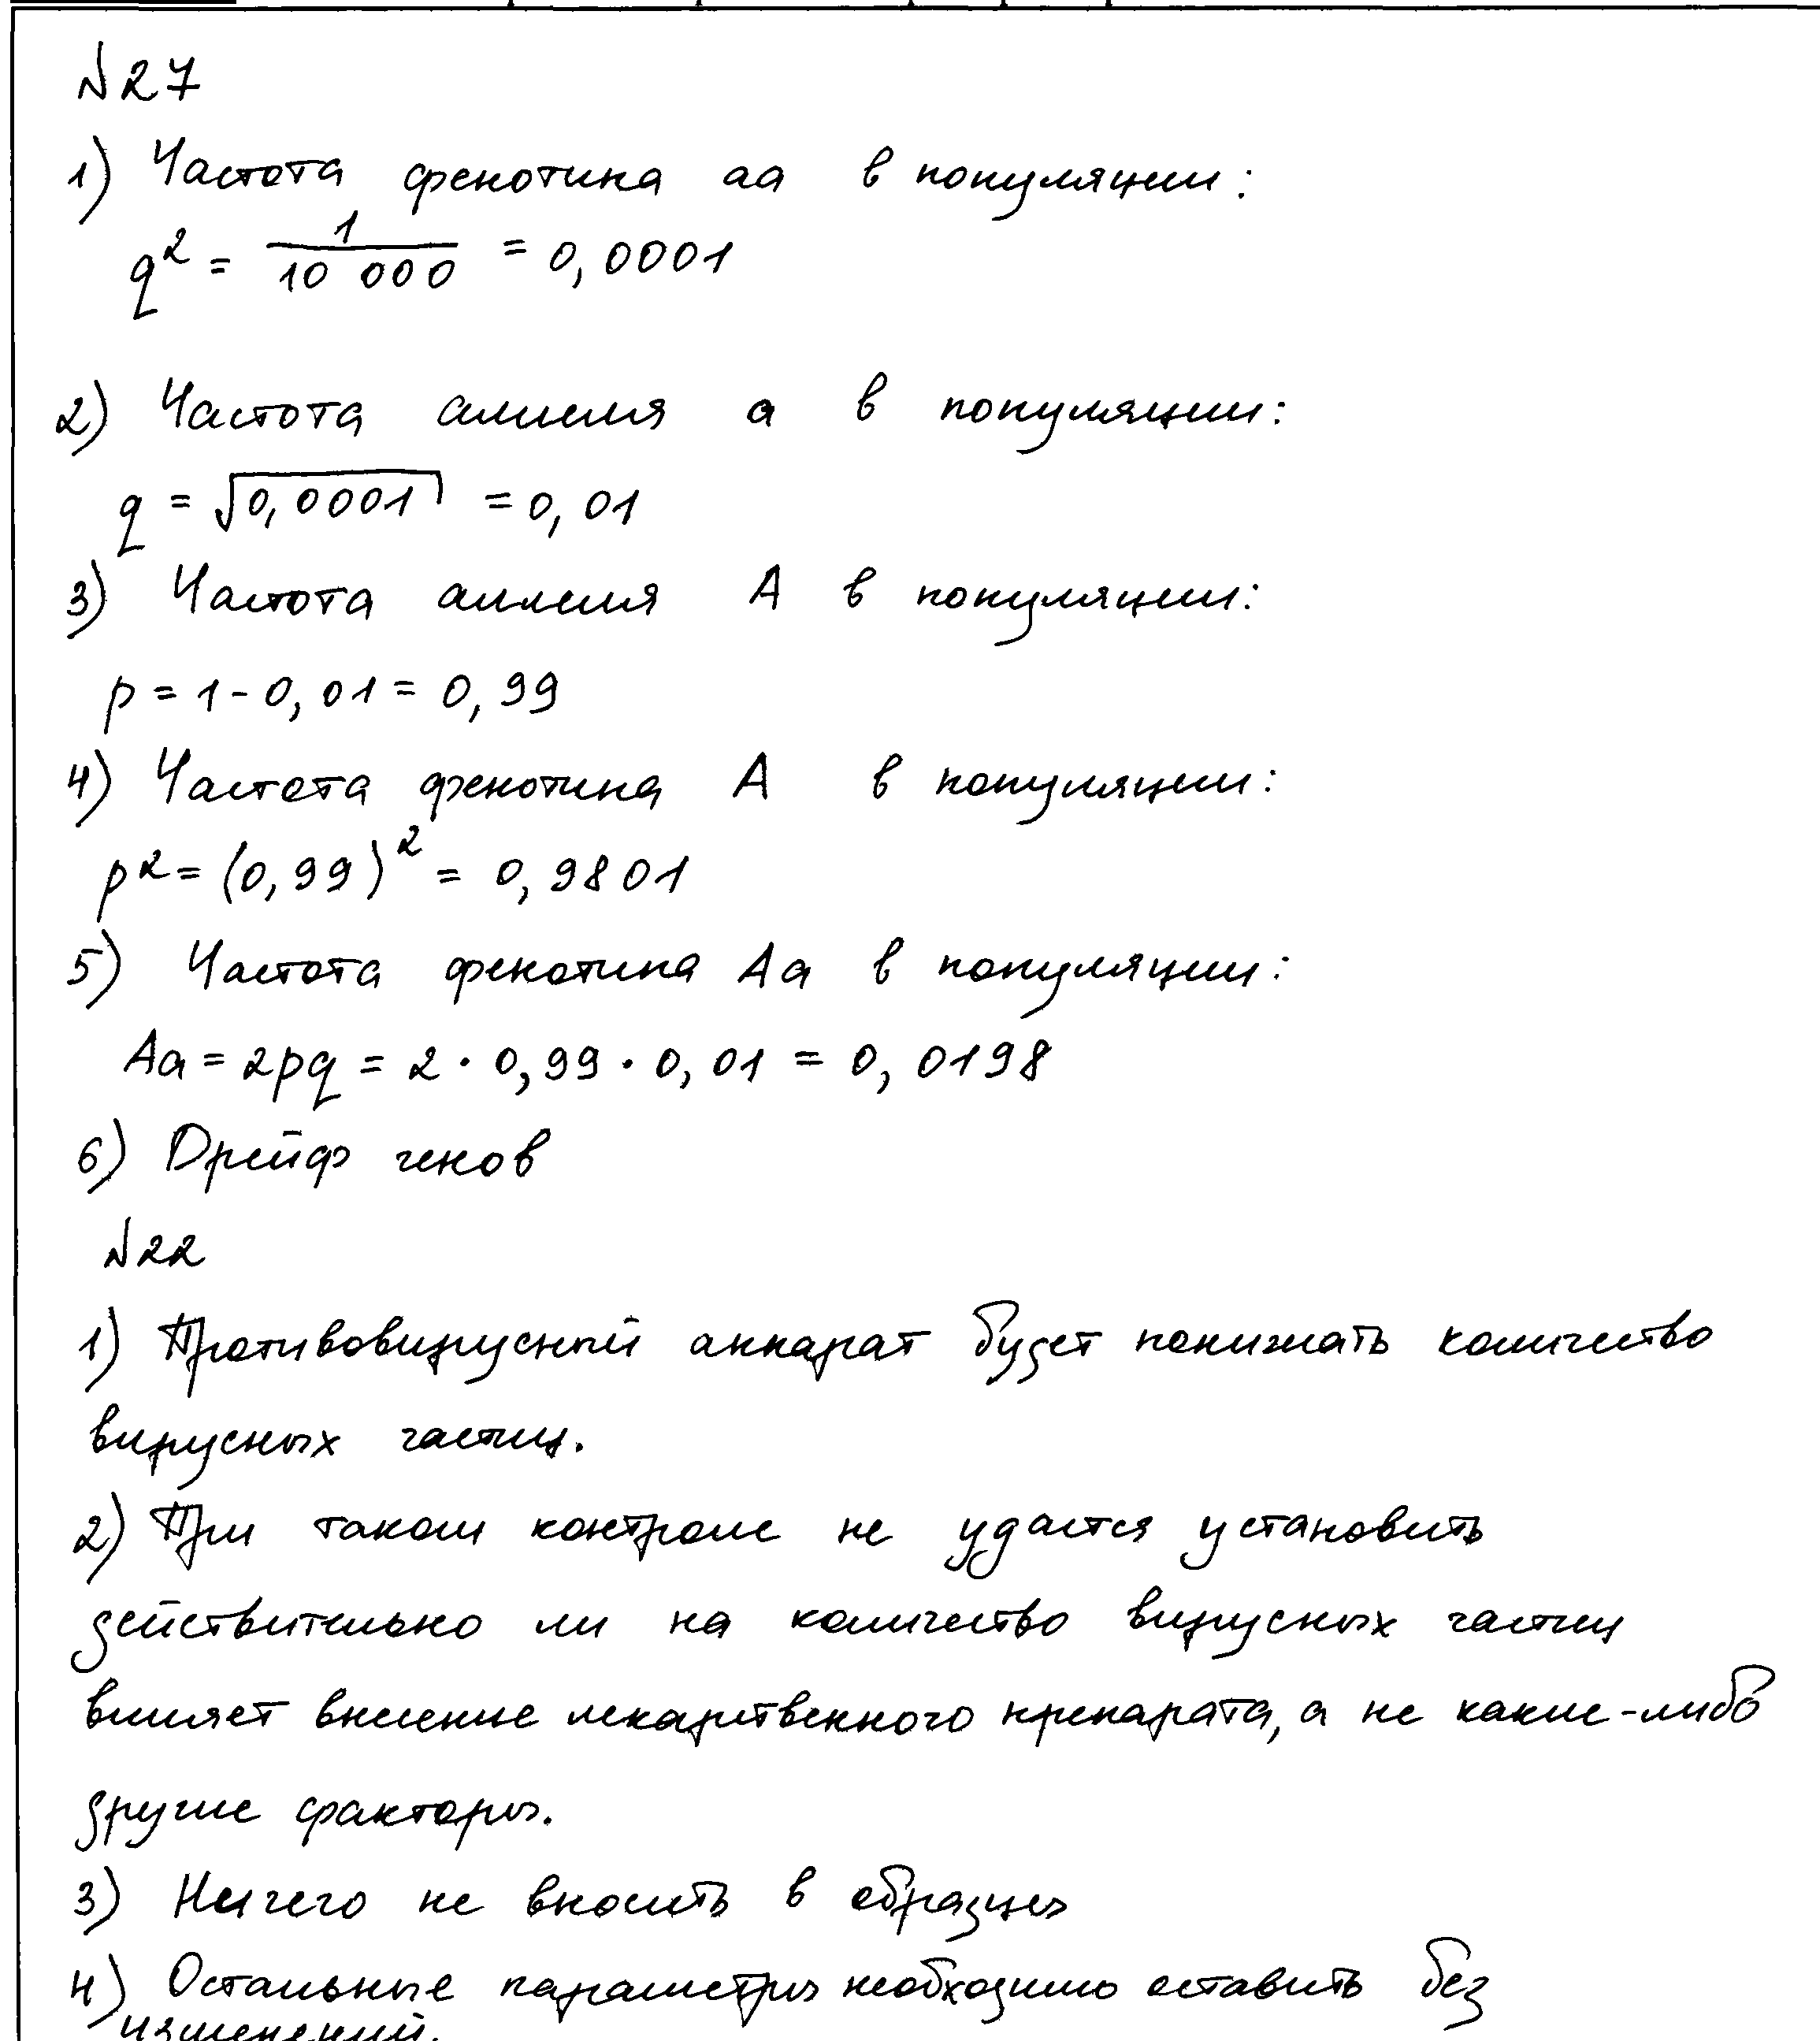 №27
1) Частота фенотипа аа в популяции:
q² = 1/10 000 = 0,0001
2) Частота аллеля а в популяции:
q = √0,0001 = 0,01
3) Частота аллеля А в популяции:
p = 1 - 0,01 = 0,99
4) Частота фенотипа А в популяции:
p² = (0,99)² = 0,9801
5) Частота фенотипа Аа в популяции:
Аа = 2pq = 2 · 0,99 · 0,01 = 0,0198
6) Дрейф генов
№22
1) Противовирусный аппарат будет понижать количество
вирусных частиц.
2) При таком контроле не удастся установить
действительно ли на количество вирусных частиц
влияет внесение лекарственного препарата, а не какие-либо
другие факторы.
3) Ничего не вносить в образцы
4) Остальные параметры необходимо оставить без
изменений.